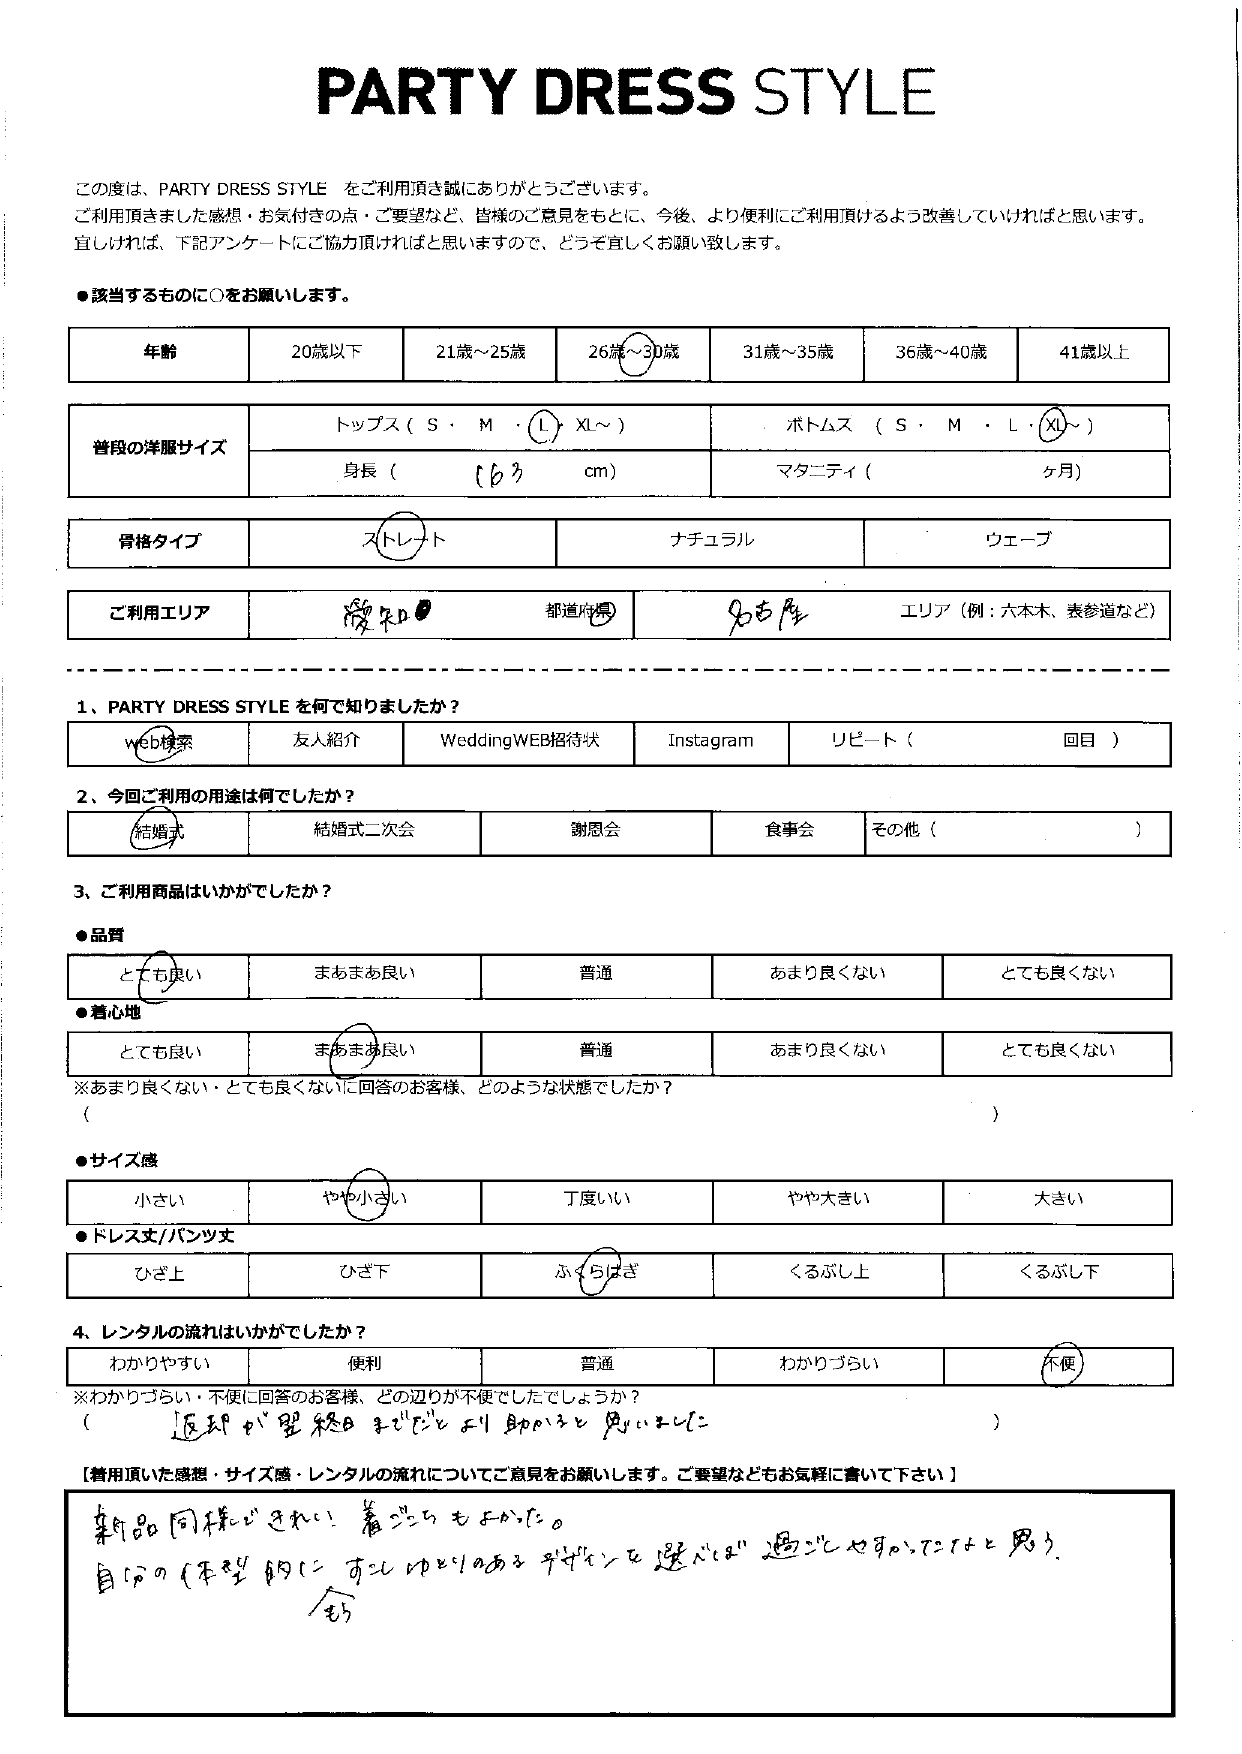 PARTY DRESS STYLE
この度は、PARTY DRESS STYLE をご利用頂き誠にありがとうございます。
ご利用頂きました感想・お気付きの点・ご要望など、皆様のご意見をもとに、今後、より便利にご利用頂けるよう改善していければと思います。
宜しければ、下記アンケートにご協力頂ければと思いますので、どうぞ宜しくお願い致します。
●該当するものに○をお願いします。
年齢 20歳以下 21歳～25歳 26歳～30歳 31歳～35歳 36歳～40歳 41歳以上
普段の洋服サイズ トップス ( S ・ M ・ L ・ XL～ ) ボトムス ( S ・ M ・ L ・ XL～ )
身長 ( 163 cm) マタニティ ( ヶ月)
骨格タイプ ストレート ナチュラル ウェーブ
ご利用エリア 愛知 都道府県 名古屋 エリア（例：六本木、表参道など）
1、PARTY DRESS STYLE を何で知りましたか？
web検索 友人紹介 WeddingWEB招待状 Instagram リピート（ 回目 ）
2、今回ご利用の用途は何でしたか？
結婚式 結婚式二次会 謝恩会 食事会 その他（ ）
3、ご利用商品はいかがでしたか？
●品質
とても良い まあまあ良い 普通 あまり良くない とても良くない
●着心地
とても良い まあまあ良い 普通 あまり良くない とても良くない
※あまり良くない・とても良くないに回答のお客様、どのような状態でしたか？
（ ）
●サイズ感
小さい やや小さい 丁度いい やや大きい 大きい
●ドレス丈/パンツ丈
ひざ上 ひざ下 ふくらはぎ くるぶし上 くるぶし下
4、レンタルの流れはいかがでしたか？
わかりやすい 便利 普通 わかりづらい 不便
※わかりづらい・不便に回答のお客様、どの辺りが不便でしたでしょうか？
（ 返却が翌終日までだとより助かると思いました ）
【着用頂いた感想・サイズ感・レンタルの流れについてご意見をお願いします。ご要望などもお気軽に書いて下さい 】
新品同様できれい。着ごこちもよかった。
自分の体型的にすこしゆとりのあるデザインを選べば過ごしやすかったなと思う。
もう